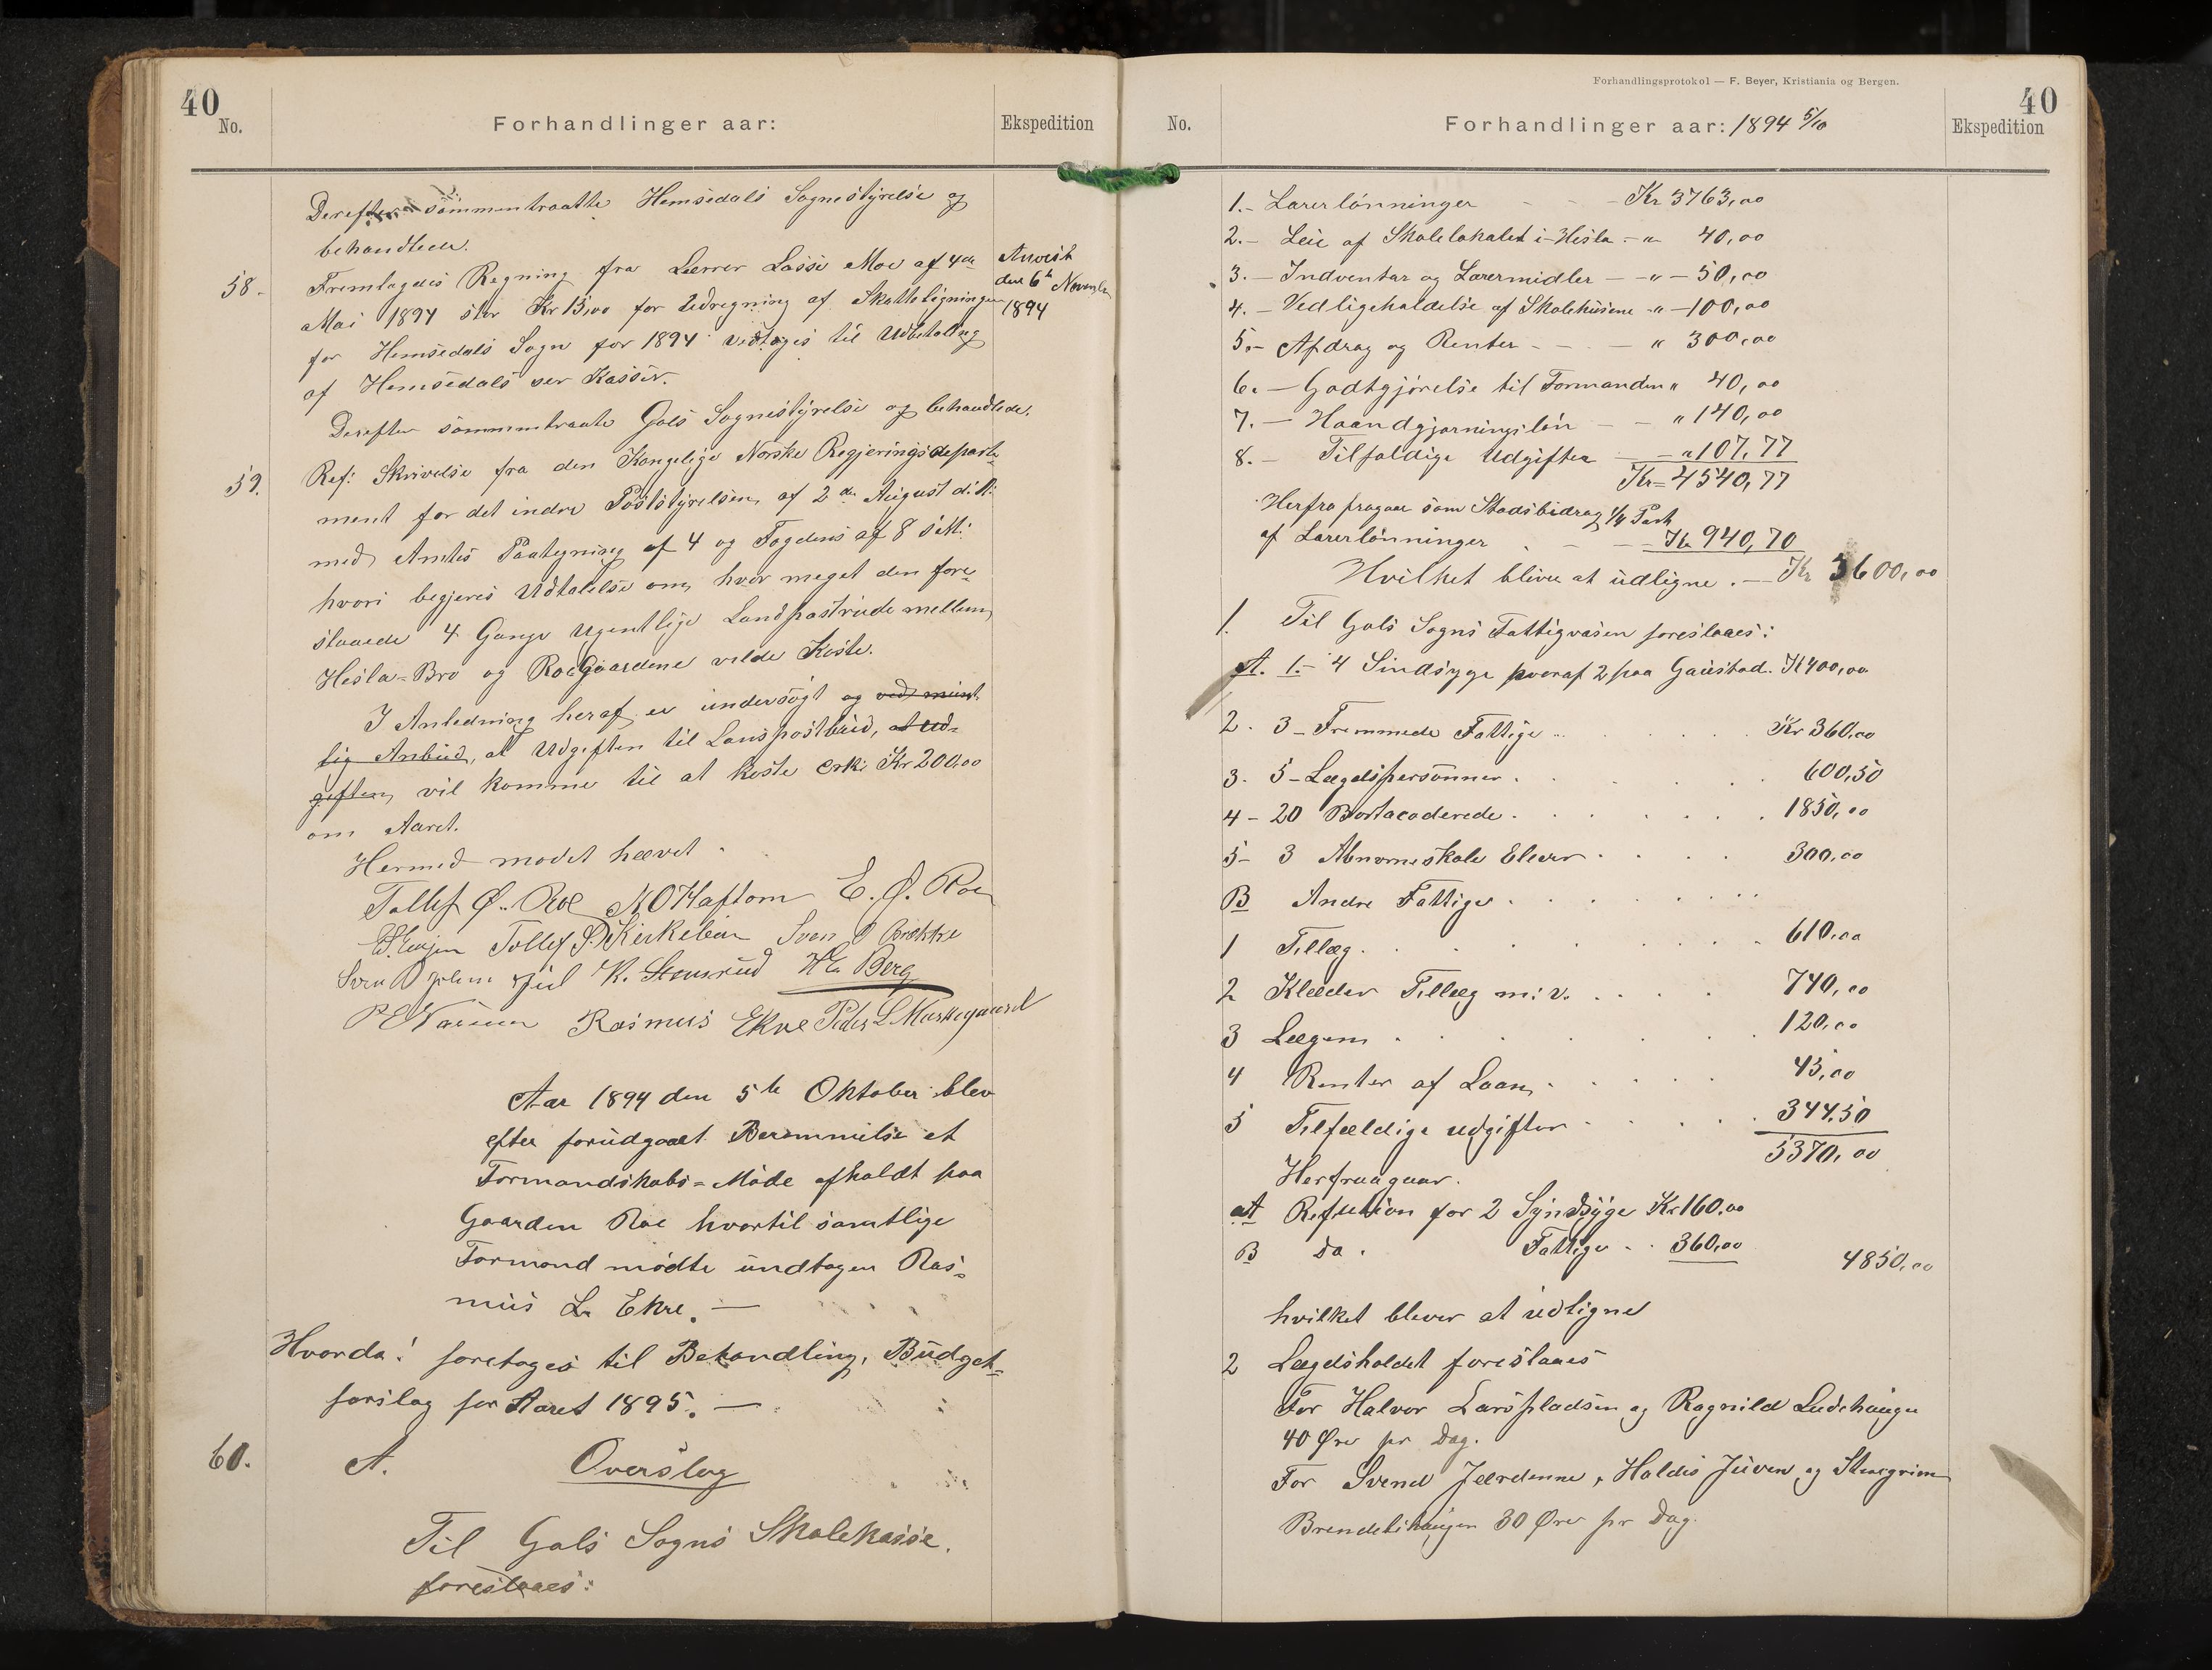 40
No.
Forhandlinger aar:
Ekspedition
Derefter sammentraatte Hemsedals Sognestyrelse og
behandlede.
58.
Fremlagdes Regning fra Lærer Lasse Moe af 4de
Mai 1894 stor Kr 15,00 for Udregning af Skatteligningen
for Hemsedals Sogn for 1894 vedtages til Udbetaling
af Hemsedals Kasse.
Anvist
den 6te November
1894
Derefter sammentraate Gols Sognestyrelse og behandlede.
59.
Ref: Skrivelse fra den Kongelige Norske Regjerings departe-
ment for det indre Poststyrelsen, af 2den August d. A.
med Amtets Paategning af 4 og Fogdens af 8 s. M.
hvori begjeres Udtalelse om, hvor meget den fore-
staaede 4 Gange Ugentlige Landpostrude mellem
Hesla-Bro og Roegaardene vilde Koste.
I Anledning heraf er undersøgt og ved mind-
lig Anbud, at Udgiften til Lanspostbud, at ud-
giften, vil komme til at koste cirka Kr 200,00
om Aaret.
Hermed modet hævet.
Tollef Ø. Roe N O Haftorn E. Ø. Roe
Tollef S. Kirkebøen Sven O Brekke
K. Stensrud H E Berg
Rasmus Ekre Peder L Muskegaard
Aar 1894 den 5te Oktober blev
efter forudgaaet Berammelse et
Formandskabs-Møde afholdt paa
Gaarden Roe hvortil samtlige
Formænd mødte undtagen Ras-
mus L. Ekre.
Hvorda! foretages til Behandling, Budget-
forslag for Aaret 1895.
60.
A. Overslag
Til Gols Sogns Skolekasse.
foreslaaes:
Forhandlingsprotokol — F. Beyer, Kristiania og Bergen.
40
No.
Forhandlinger aar: 1894 5/10
Ekspedition
1.- Lærerlønninger - - - Kr 3763,00
2.- Leie af Skolelokalet i Hesla - " 40,00
3.- Indventar og Læremidler - " - 50,00
4.- Vedligeholdelse af Skolehusene - " - 100,00
5.- Afdrag og Renter - - - " 300,00
6.- Godtgjørelse til Formanden " 40,00
7.- Haandgjerningsløn - - " 140,00
8.- Tilfaldige Udgifter - " 107,77
Kr= 4540,77
Herfra fragaar som Stadsbidrag 1/4 Part
af Lærerlønninger - - Kr 940,70
Hvilket bliver at udligne. - Kr 3600,00
1. Til Gols Sogns Fattigvæsen foreslaaes:
A. 1.- 4 Sindsyge hvoraf 2 paa Gaustad. K 400,00
2. 3 - Fremmede Fattige . . . Kr 360,00
3. 5 - Lægdspersonner . . . 600,50
4 - 20 Bortacoderede . . . 1850,00
5 - 3 Abnormeskole Elever . . . 300,00
B Andre Fattige . . .
1 Tillæg . . . 610,00
2 Klæder Tillæg m. v. . . . 740,00
3 Lægen . . . 120,00
4 Renter af Laan . . . 45,00
5 Tilfældige udgifter . . . 344,50
5370,00
Herfraagaar.
A Refusion for 2 Syndsyge Kr 160,00
B Do. Fattige . . 360,00
4850,00
hvilket blever at udligne
2 Lægdsholdet foreslaaes
For Halvor Larspladsen og Ragnild Ludehaugen
40 Øre pr Dag.
For Svend Jærdenne, Haldis Juven og Stengrim
Brendebihaugen 30 Øre pr Dag.